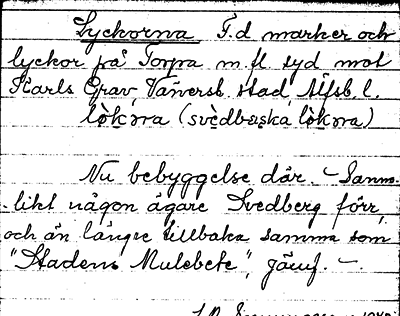 Lyckorna F.d marker och
lyckor på Torpa m.fl syd mot
Karls Grav, Vänersb. stad, Älfsb. l.
lòkɔra (svèdbærska lòkɔra)
Nu bebyggelse där. – Sanno-
likt någon ägare Svedberg förr,
och än längre tillbaka samma som
"Stadens Mulebete", jämf. –